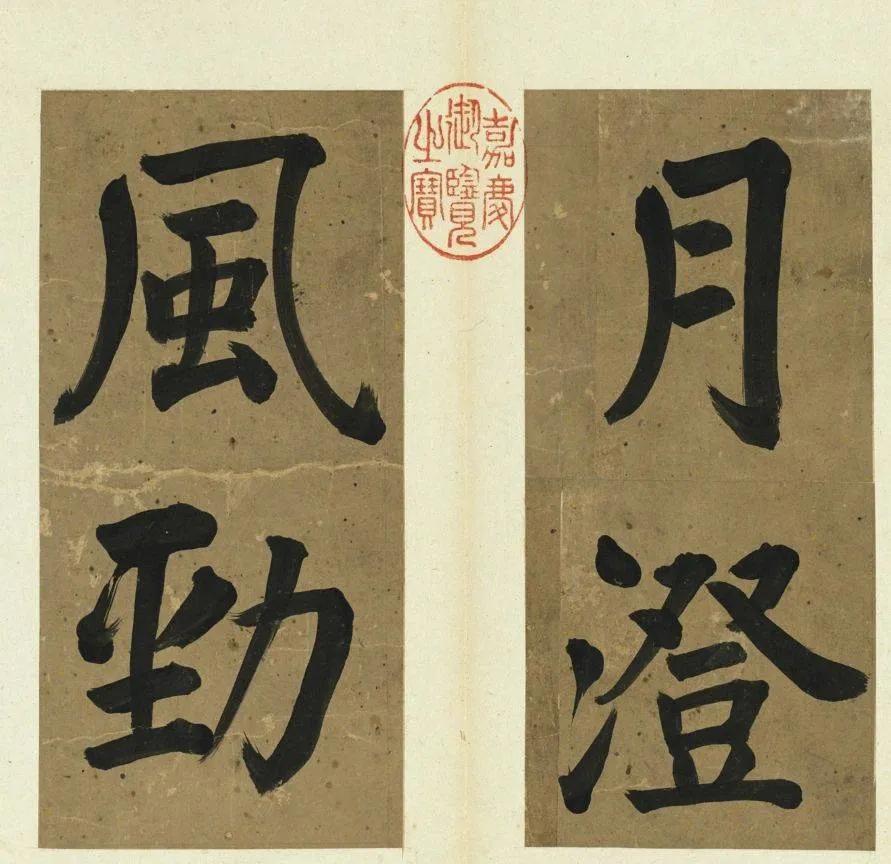 月澄
嘉慶
御覽
之寶
風勁